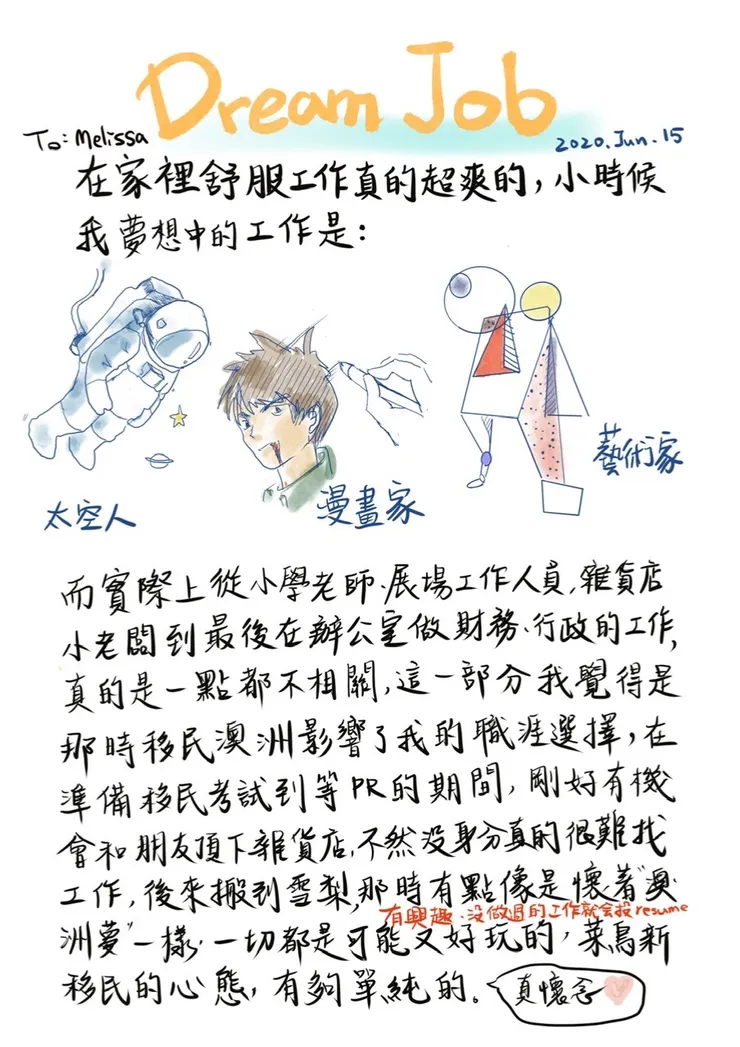 Dream Job
To: Melissa
2020.Jun.15
在家裡舒服工作真的超爽的，小時候
我夢想中的工作是：
太空人
漫畫家
藝術家
而實際上從小學老師、展場工作人員、雜貨店
小老闆到最後在辦公室做財務、行政的工作，
真的是一點都不相關，這一部分我覺得是
那時移民澳洲影響了我的職涯選擇，在
準備移民考試到等PR的期間，剛好有機
會和朋友頂下雜貨店，不然沒身分真的很難找
工作，後來搬到雪梨，那時有點像是懷著"澳
有興趣、沒做過的工作就会投resume
洲夢"一樣，一切都是可能又好玩的，菜鳥新
移民的心態，有夠單純的。
真懷念